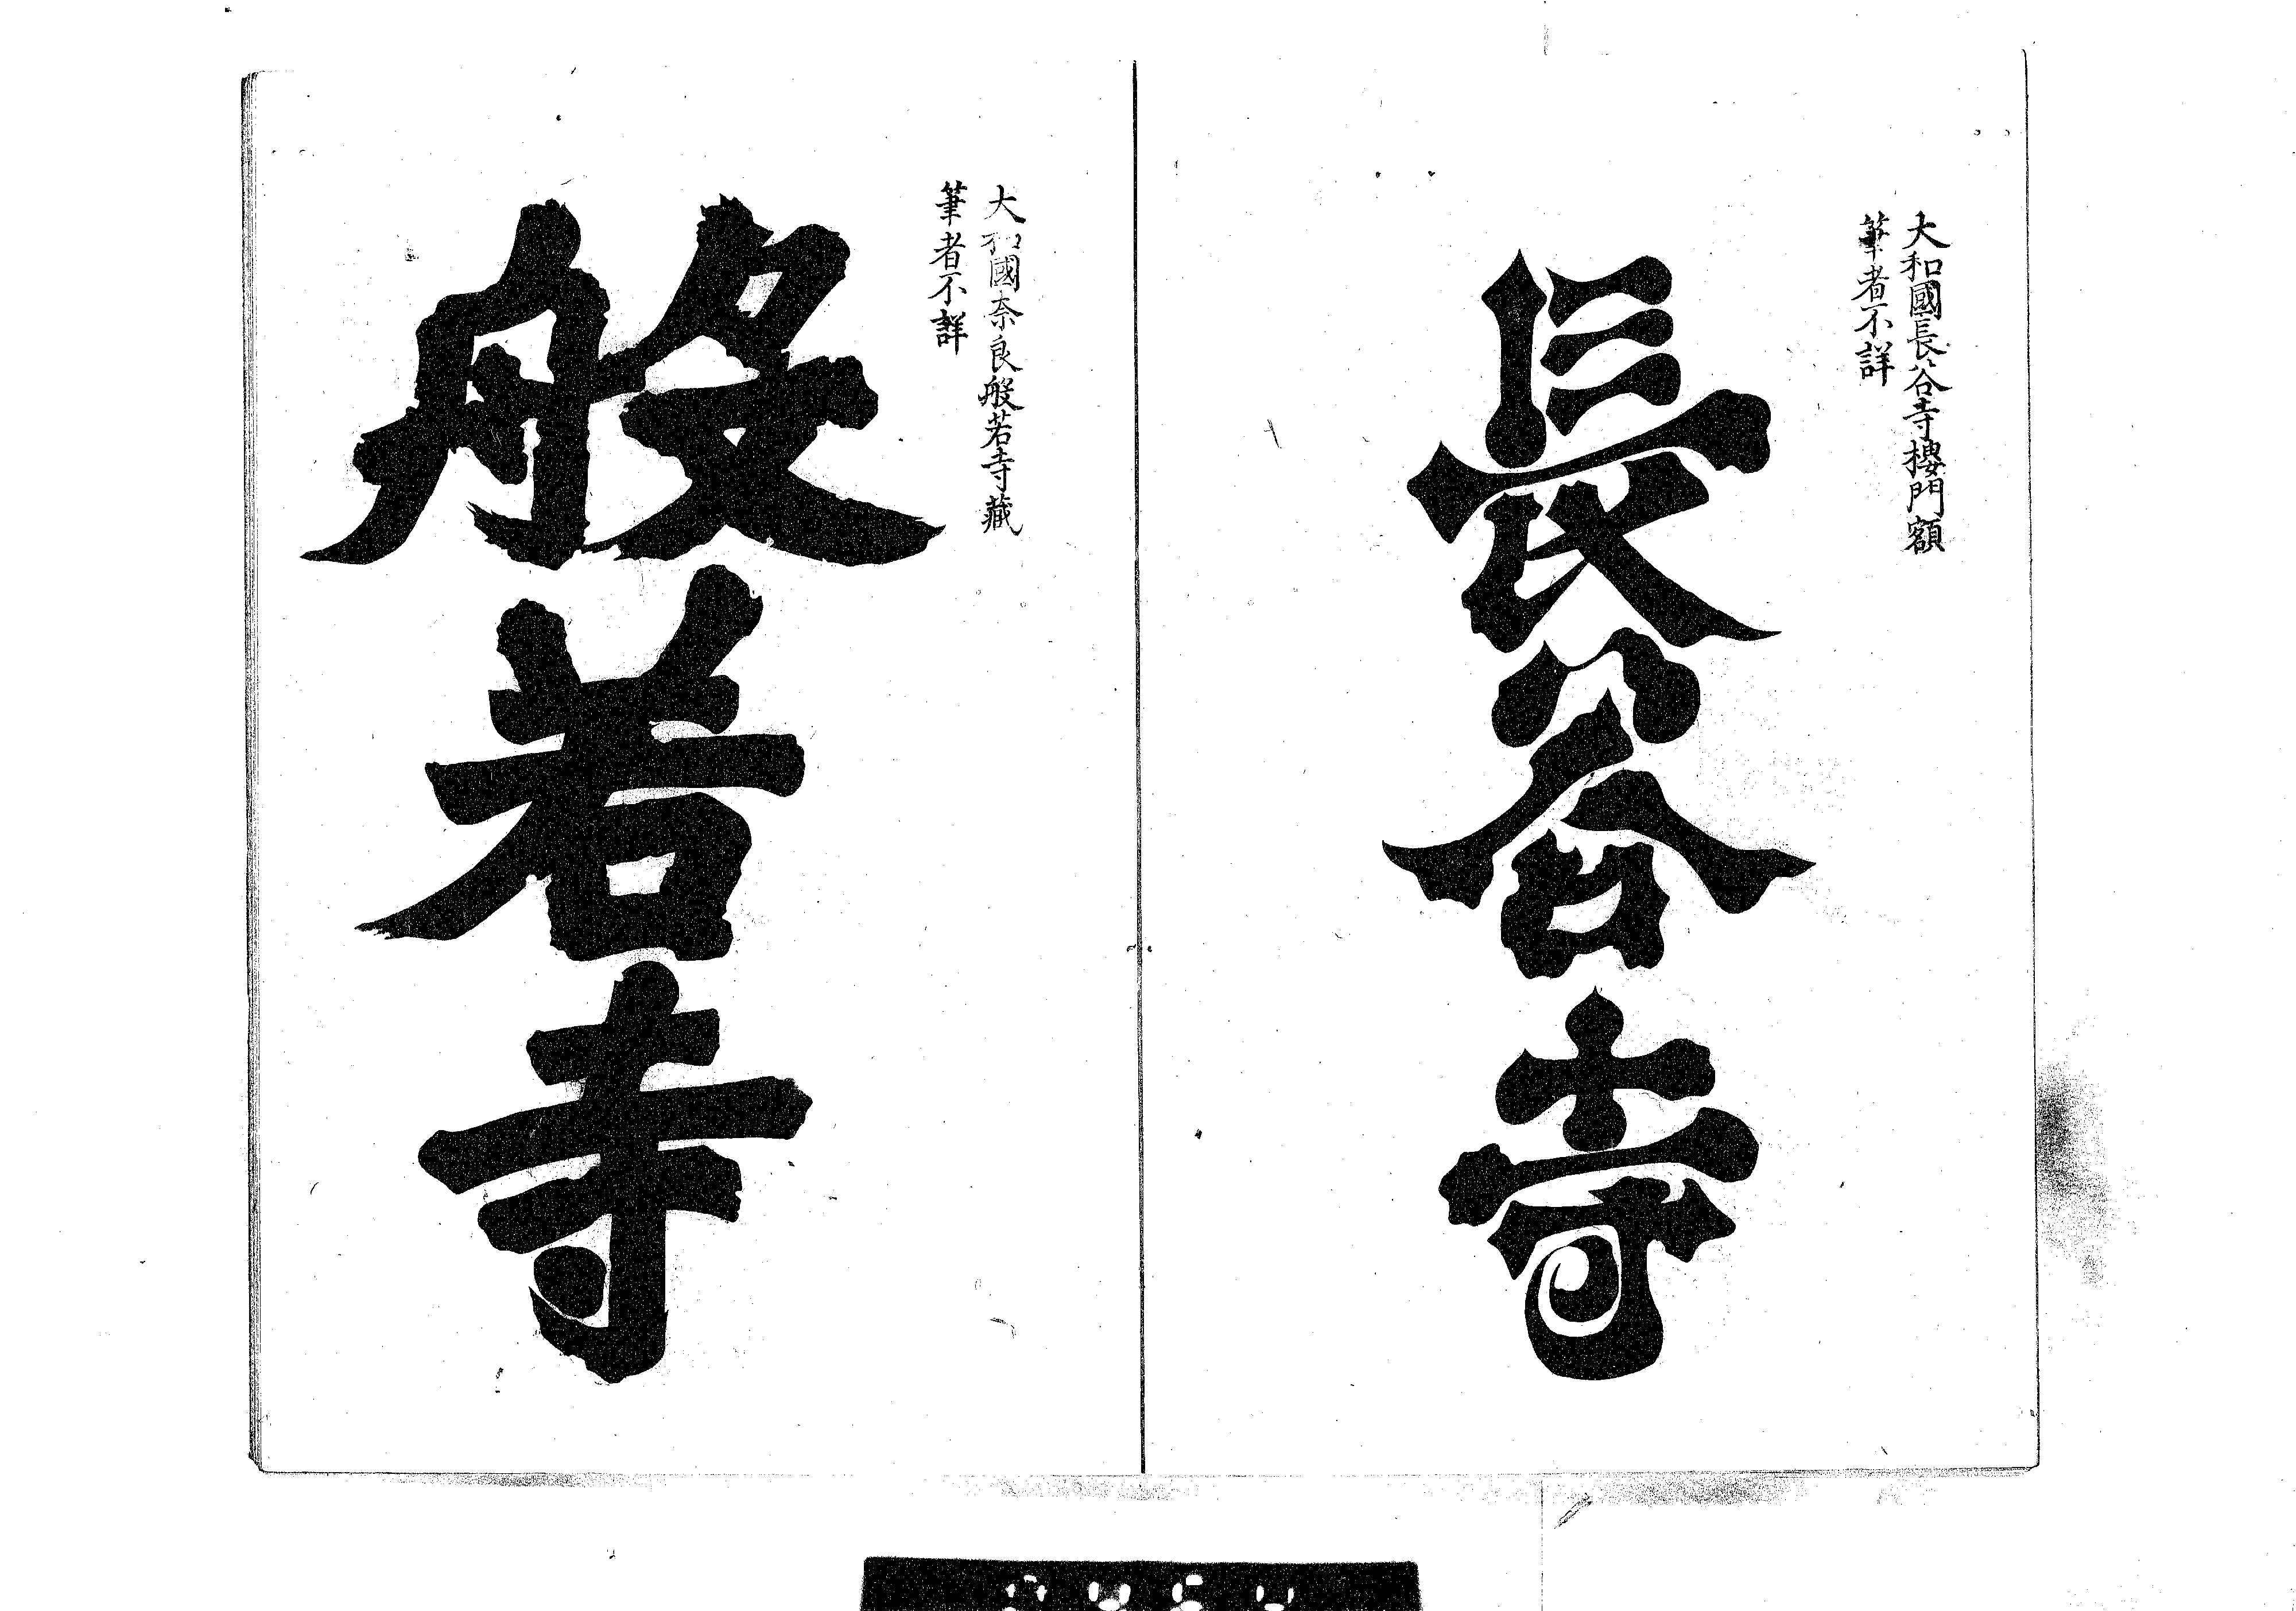 大和國長谷寺樓門額
筆者不詳
長谷寺
大和國奈良般若寺藏
筆者不詳
般若寺